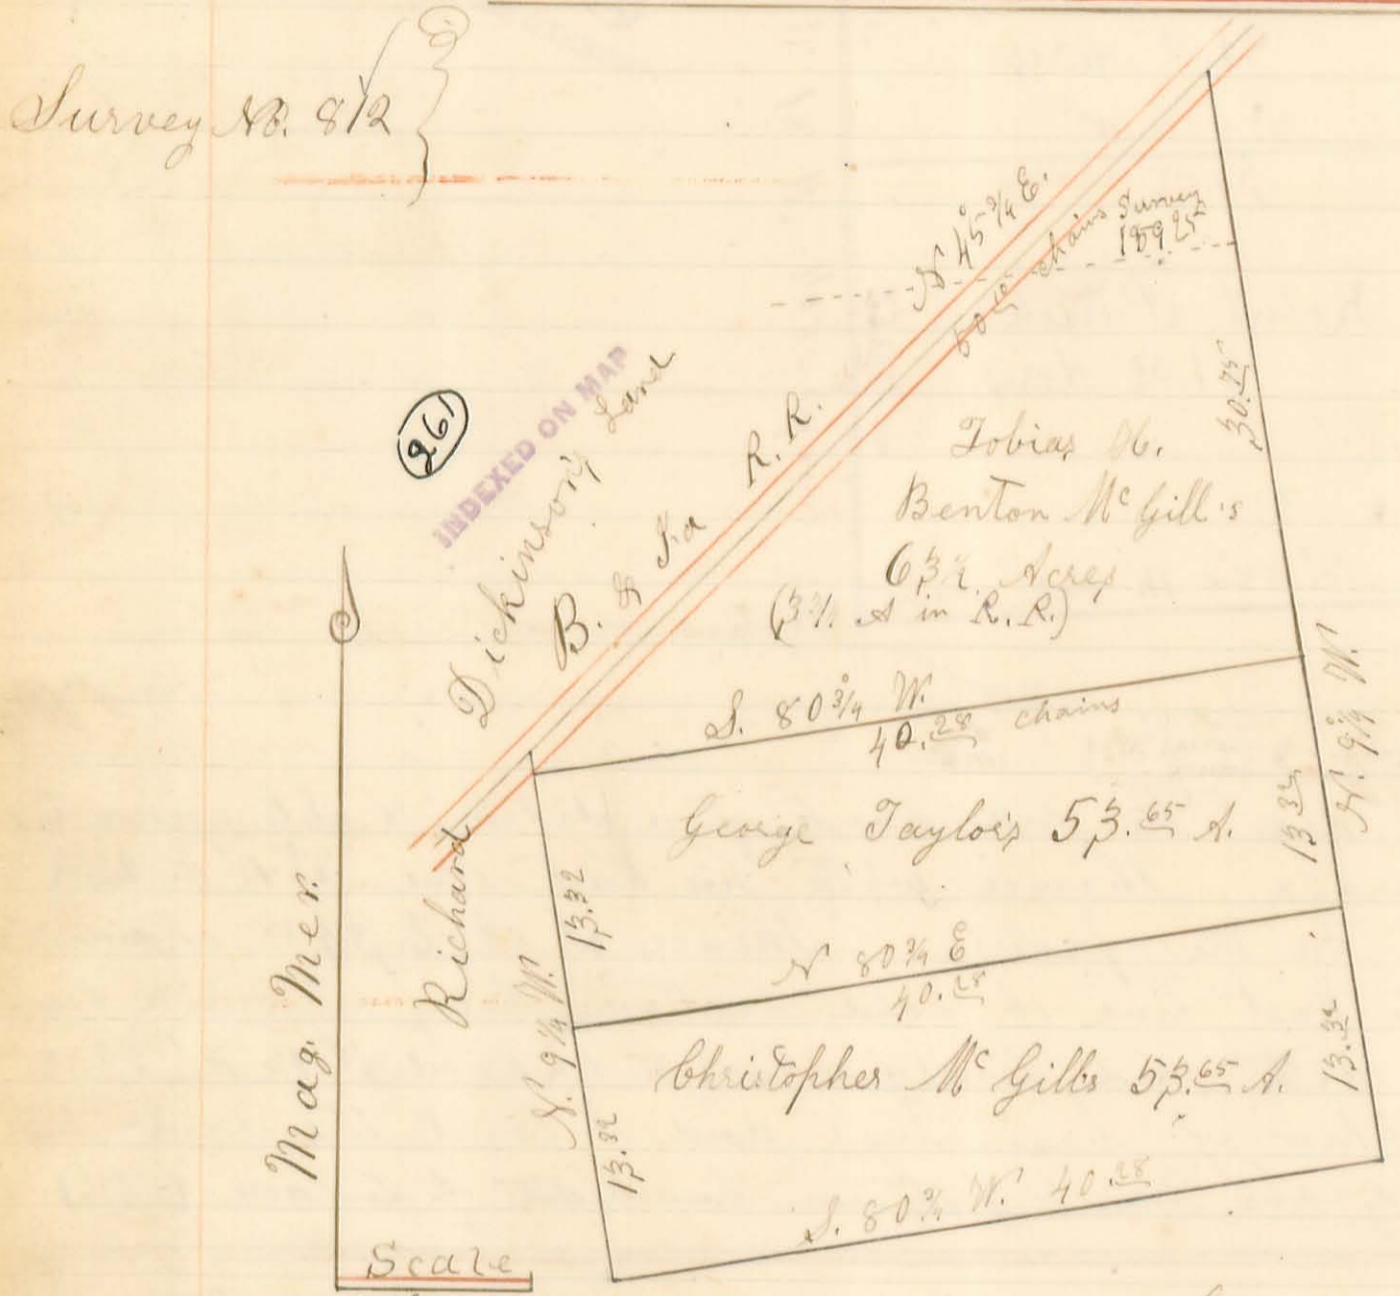 Survey No. 812
261
INDEXED ON MAP
Richard Dickinson's Land
B. & Ia R. R.
N 45 3/4° E.
chains
Survey
30.75
Tobias H.
Benton Mc Gill's
63 1/2 Acres
(3 1/2 A in R. R.)
S. 80 3/4° W.
40.28 chains
N. 9 1/4° W.
George Taylor's 53.65 A.
13.32
13.32
N 80 3/4 E
40.28
N. 9 1/4 W.
Christopher Mc Gill's 53.65 A.
13.32
13.32
S. 80 3/4 W. 40.28
Mag. Mer.
Scale